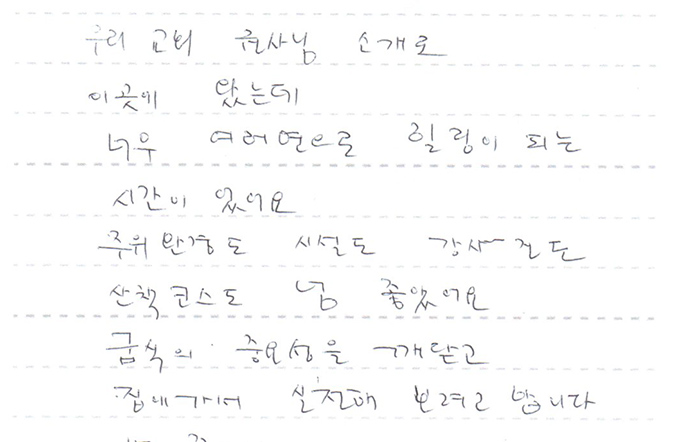 우리 교회 권사님 소개로
이곳에 왔는데
너무 여러면으로 힐링이 되는
시간이 있어요
주위환경도 시설도
산책코스도 넘 좋았어요
금식의 중요성을 깨닫고
집에가서 실천해 보려고 합니다